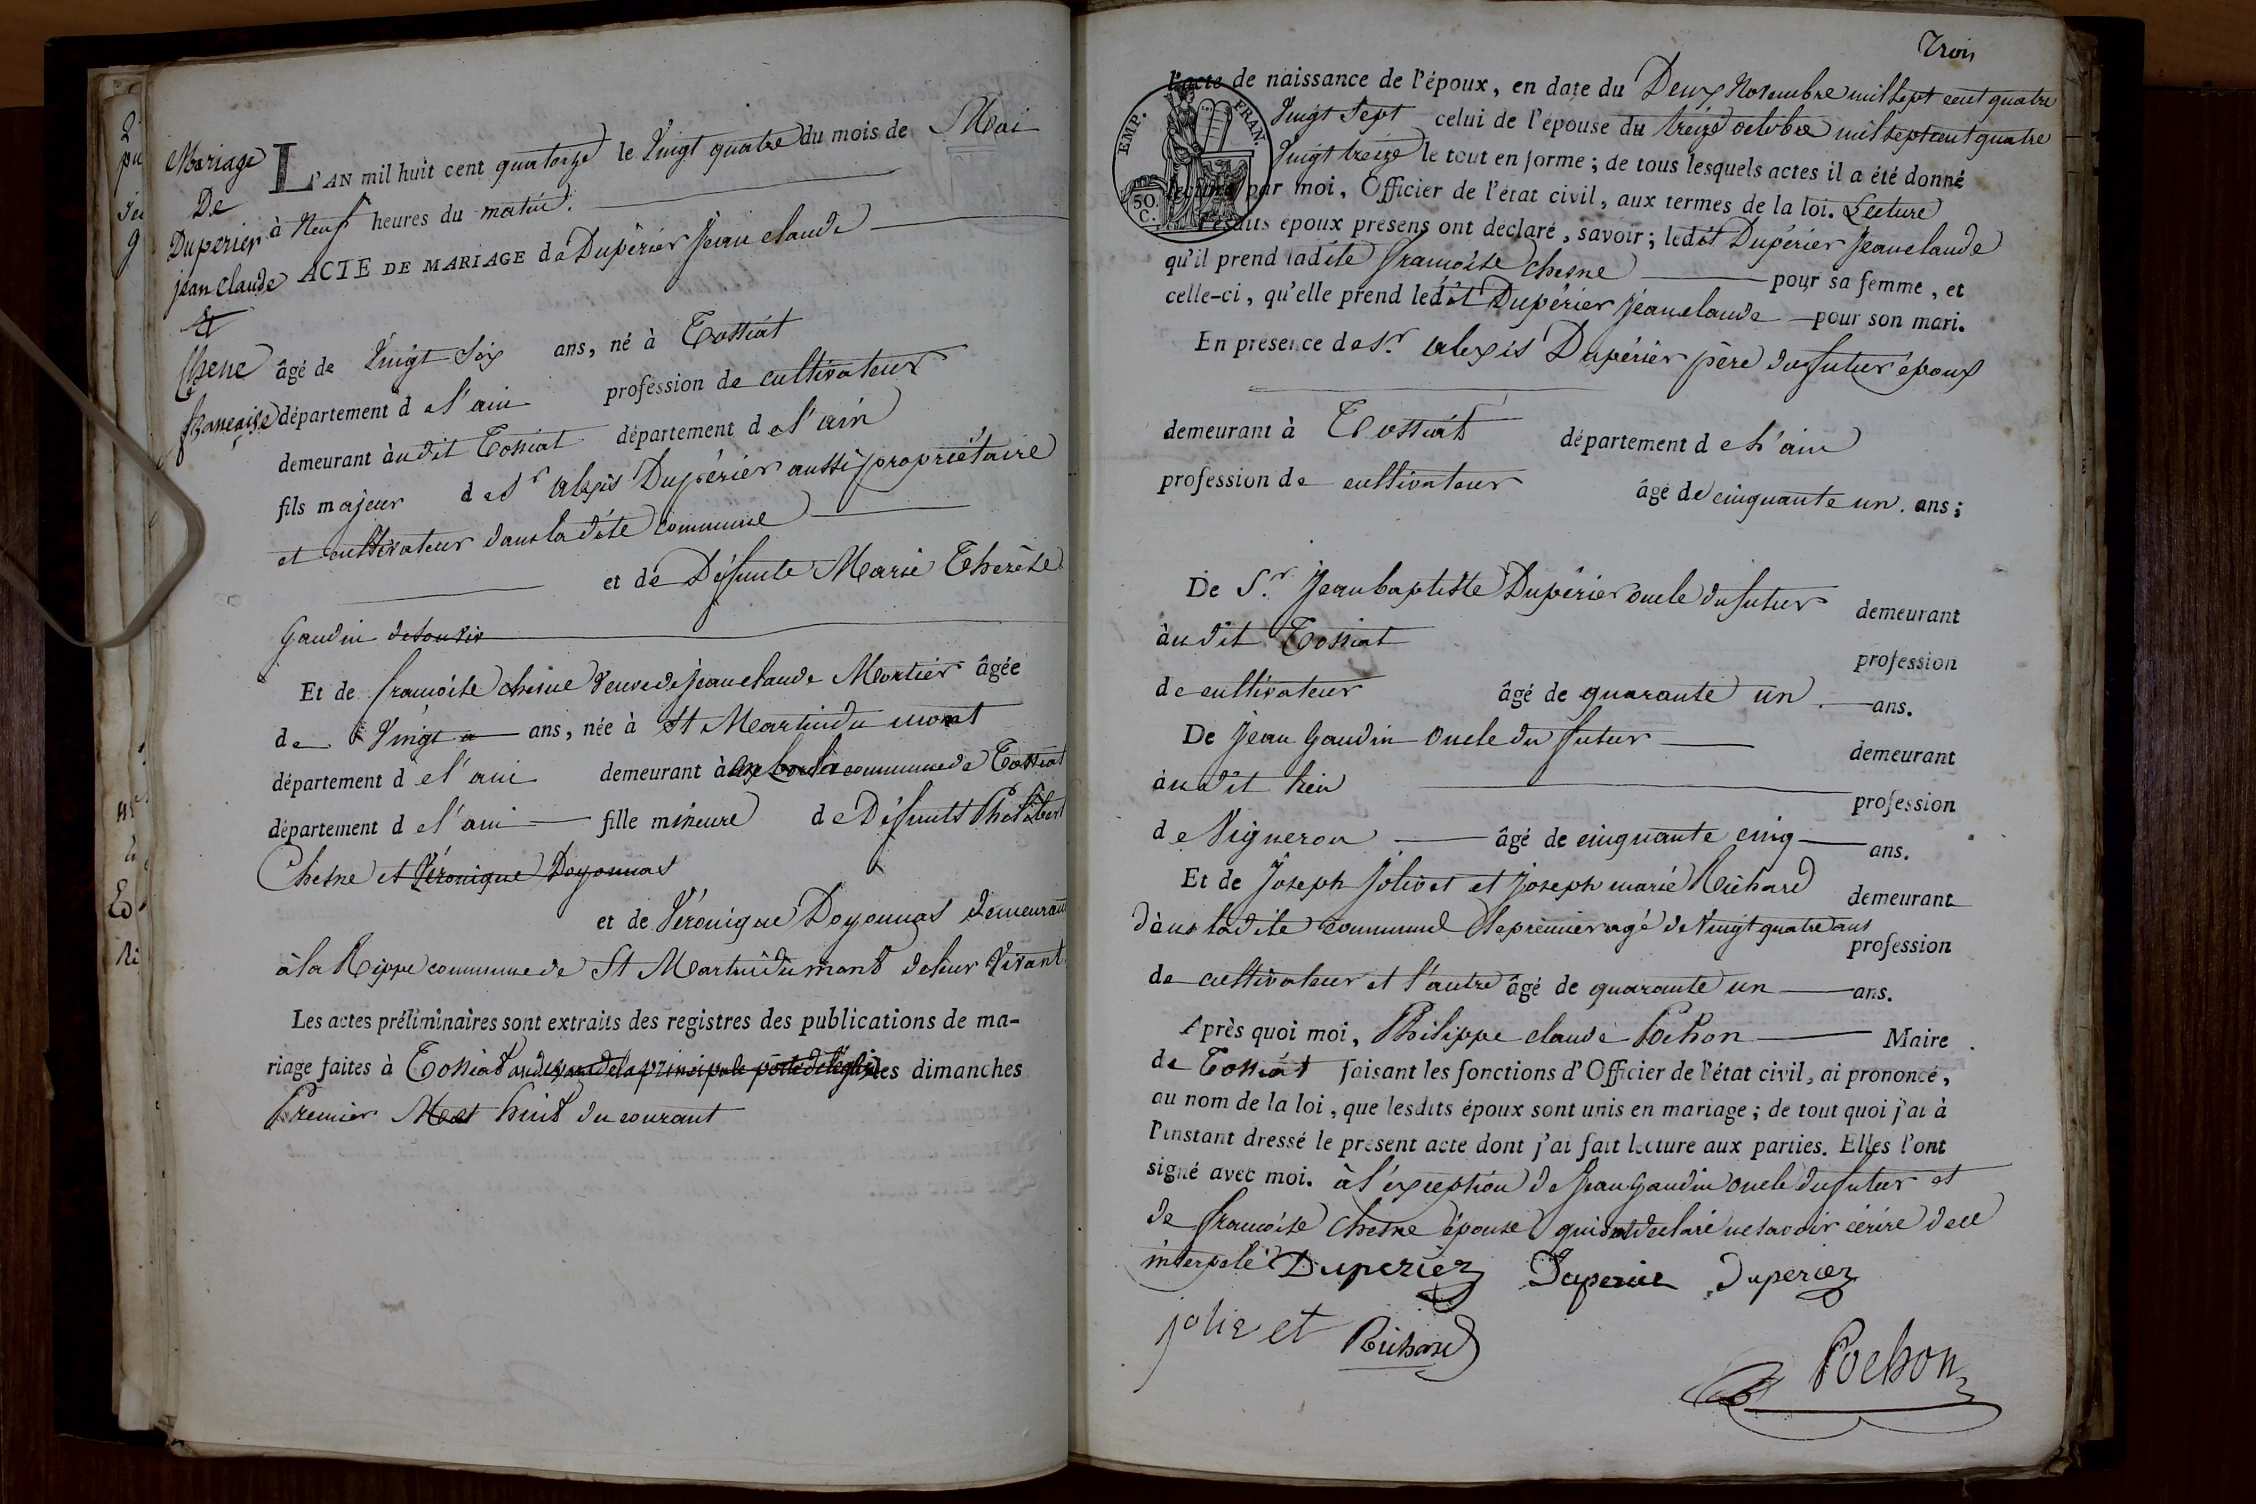 Mariage
De
Duperier
jean Claude
Et
Chene
françoise
L'AN mil huit cent quatorze le Vingt quatre du mois de Mai
à Neuf heures du matin.
ACTE DE MARIAGE de Dupérier Jean claude
âgé de Vingt Six ans, né à Tossiat
département de l'ain profession de cultivateur
demeurant audit Tossiat département de l'ain
fils majeur de Sr alexis Dupérier aussi propriétaire
et cultivateur dans la dite commune
et de Défunte Marie Therèse
Gaudin
Et de francoise chesne Veuve de jean claude Mortier âgée
de Vingt ans, née à St Martin du mont
département de l'ain demeurant à commune de Tossiat
département de l'ain fille mineure de Défunts Philibert
Chesne et Véronique Doyonnas
et de Véronique Doyonnas demeurant
à la Rippe commune de St Martin du mont de leur Vivant.
Les actes préliminaires sont extraits des registres des publications de ma-
riage faites à Tossiat au devant de la principale porte de l'église les dimanches
Premier et huit du courant
Trois
l'acte de naissance de l'époux, en date du Deux Novembre mil sept cent quatre
Vingt Sept celui de l'épouse du treize octobre mil sept cent quatre
Vingt treize le tout en forme; de tous lesquels actes il a été donné
lecture par moi, Officier de l'état civil, aux termes de la loi. Lecture
Lesdits époux présens ont déclaré, savoir; ledit Dupérier Jean claude
qu'il prend ladite francoise Chesne pour sa femme, et
celle-ci, qu'elle prend ledit Dupérier Jean claude pour son mari.
En présence de Sr. alexis Dupérier père du futur époux
demeurant à Tossiat département de l'ain
profession de cultivateur âgé de cinquante un. ans;
De Sr. Jean baptiste Dupérier oncle du futur demeurant
audit Tossiat profession
de cultivateur âgé de quarante un ans.
De Jean Gaudin Oncle du futur demeurant
audit lieu profession
de Vigneron âgé de cinquante cinq ans.
Et de Joseph Jolivet et Joseph marie Richard demeurant
dans ladite commune le premier agé de Vingt quatre ans profession
de cultivateur et l'autre âgé de quarante un ans.
Après quoi moi, Philippe claude Pochon Maire
de Tossiat faisant les fonctions d'Officier de l'état civil, ai prononcé,
au nom de la loi, que lesdits époux sont unis en mariage; de tout quoi j'ai à
l'instant dressé le présent acte dont j'ai fait lecture aux parties. Elles l'ont
signé avec moi. à l'exception de Jean Gaudin Oncle du futur et
de francoise Chesne épouse qui ont declaré ne savoir écrire de ce
interpelé Duperier Duperier Duperier
jolivet Richard
Pochon
EMP. FRAN.
50.
C.